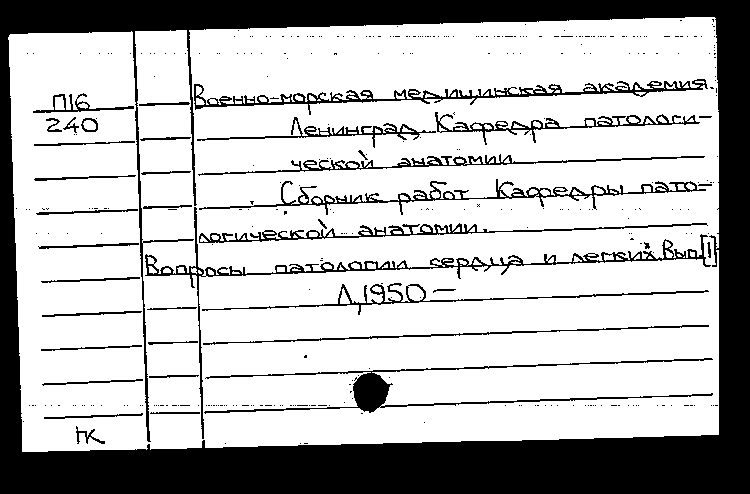 П16
240
Военно-морская медицинская академия.
Ленинград. Кафедра патологи-
ческой анатомии.
Сборник работ Кафедры пато-
логической анатомии.
Вопросы патологии сердца и легких. Вып. [1]
Л, 1950 —
ПК